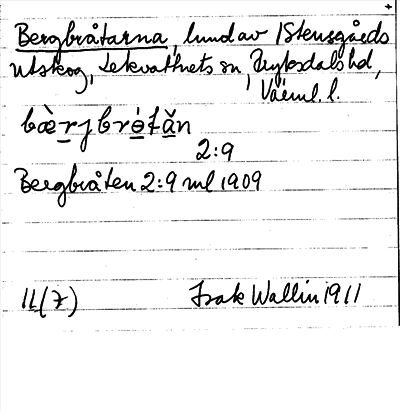 Bergbråtarna, lund av 1 Stensgårds
utskog, Lekvattnets sn, Fryksdals hd,
Värml. l.
bæ̀rjbrótăn
2:9
Bergbråten 2:9 ml 1909
11(7)
Isak Wallin 1911